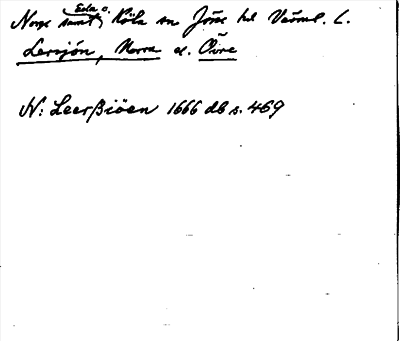 Norge samt Eda o. Köla sn Jösse hd Värml. L.
Lersjön, Norra el. Övre
N: Leerßiöen 1666 db s. 469